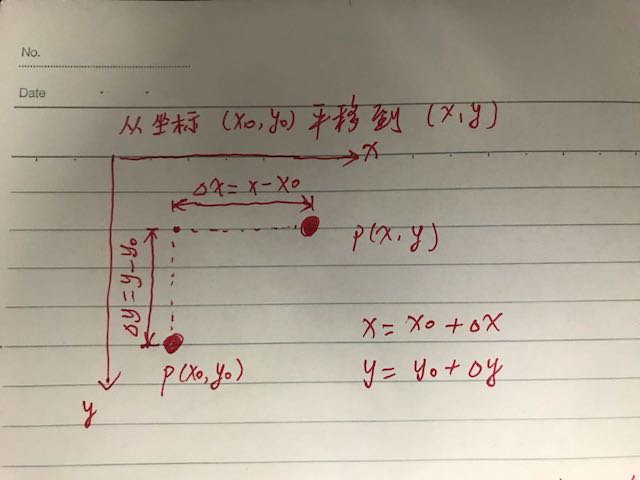 No.
Date
从坐标 (x0, y0) 平移到 (x, y)
x
Δx = x - x0
P(x, y)
Δy = y - y0
x = x0 + Δx
y = y0 + Δy
P(x0, y0)
y